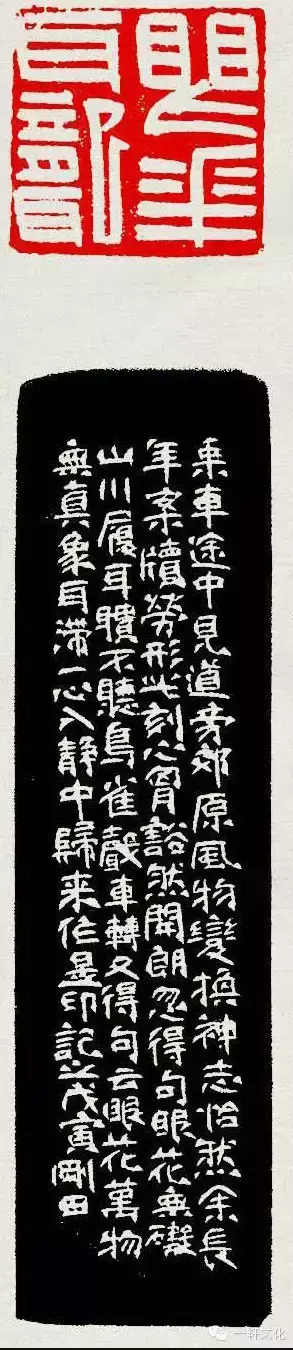 乘車途中見道旁郊原風物變換神志怡然余長
年案牘勞形此刻心胷豁然開朗忽得句眼花無礙
山川履耳聵不聽鳥雀聲車轉又得句云眼花萬物
無真象耳滯一心入静中歸来作是印記之戊寅剛田
一轩文化